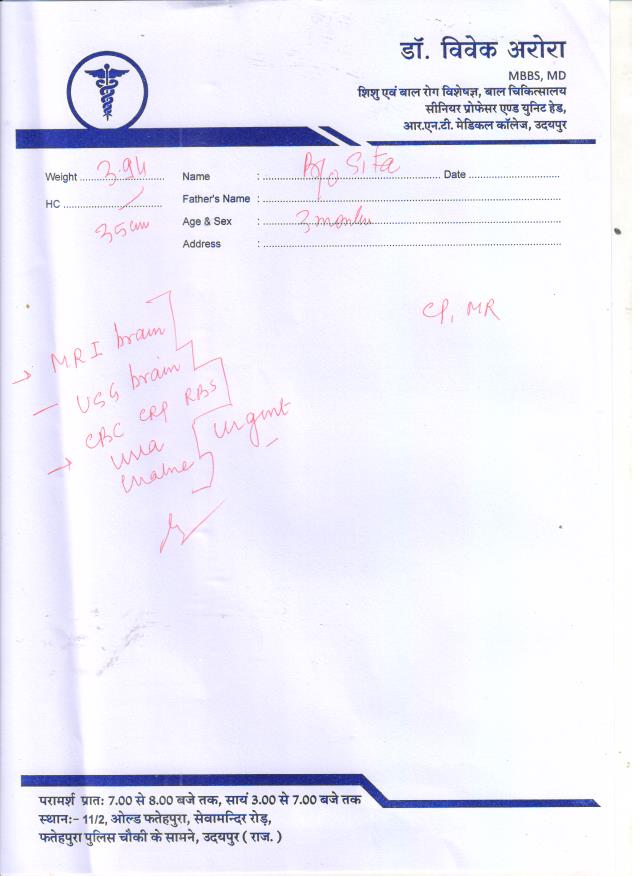 डॉ. विवेक अरोरा
MBBS, MD
शिशु एवं बाल रोग विशेषज्ञ, बाल चिकित्सालय
सीनियर प्रोफेसर एण्ड युनिट हेड,
आर.एन.टी. मेडिकल कॉलेज, उदयपुर
Weight 3.94 Name : B/o Sita Date
HC 35 cm Father's Name :
Age & Sex : 3 months
Address :
CP, MR
→ MRI brain
— USG brain
CBC CRP RBS
→ urea urgent
परामर्श प्रातः 7.00 से 8.00 बजे तक, सायं 3.00 से 7.00 बजे तक
स्थानः- 11/2, ओल्ड फतेहपुरा, सेवामन्दिर रोड़,
फतेहपुरा पुलिस चौकी के सामने, उदयपुर ( राज. )